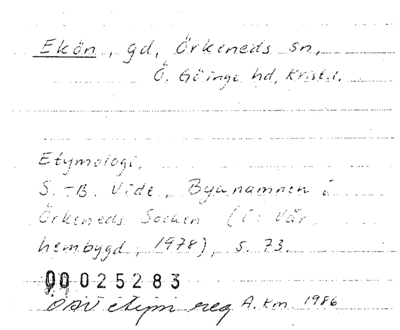 Ekön, gd, Örkeneds sn,
Ö. Göinge hd, Krist. l.
Etymologi.
S.-B. Vide, Bynamnen i
Örkeneds Socken (i: Vår
hembygd, 1978), s. 73.
00025283
ÖDAV etym reg A. Km. 1986